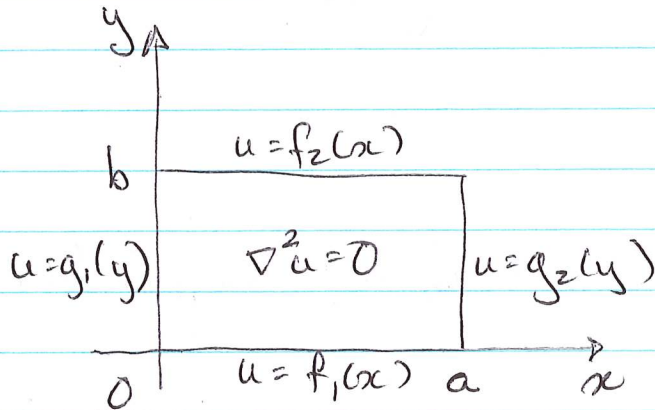 y
u = f₂(x)
b
u=g₁(y)
∇²u = 0
u = g₂(y)
0
u = f₁(x)
a
x